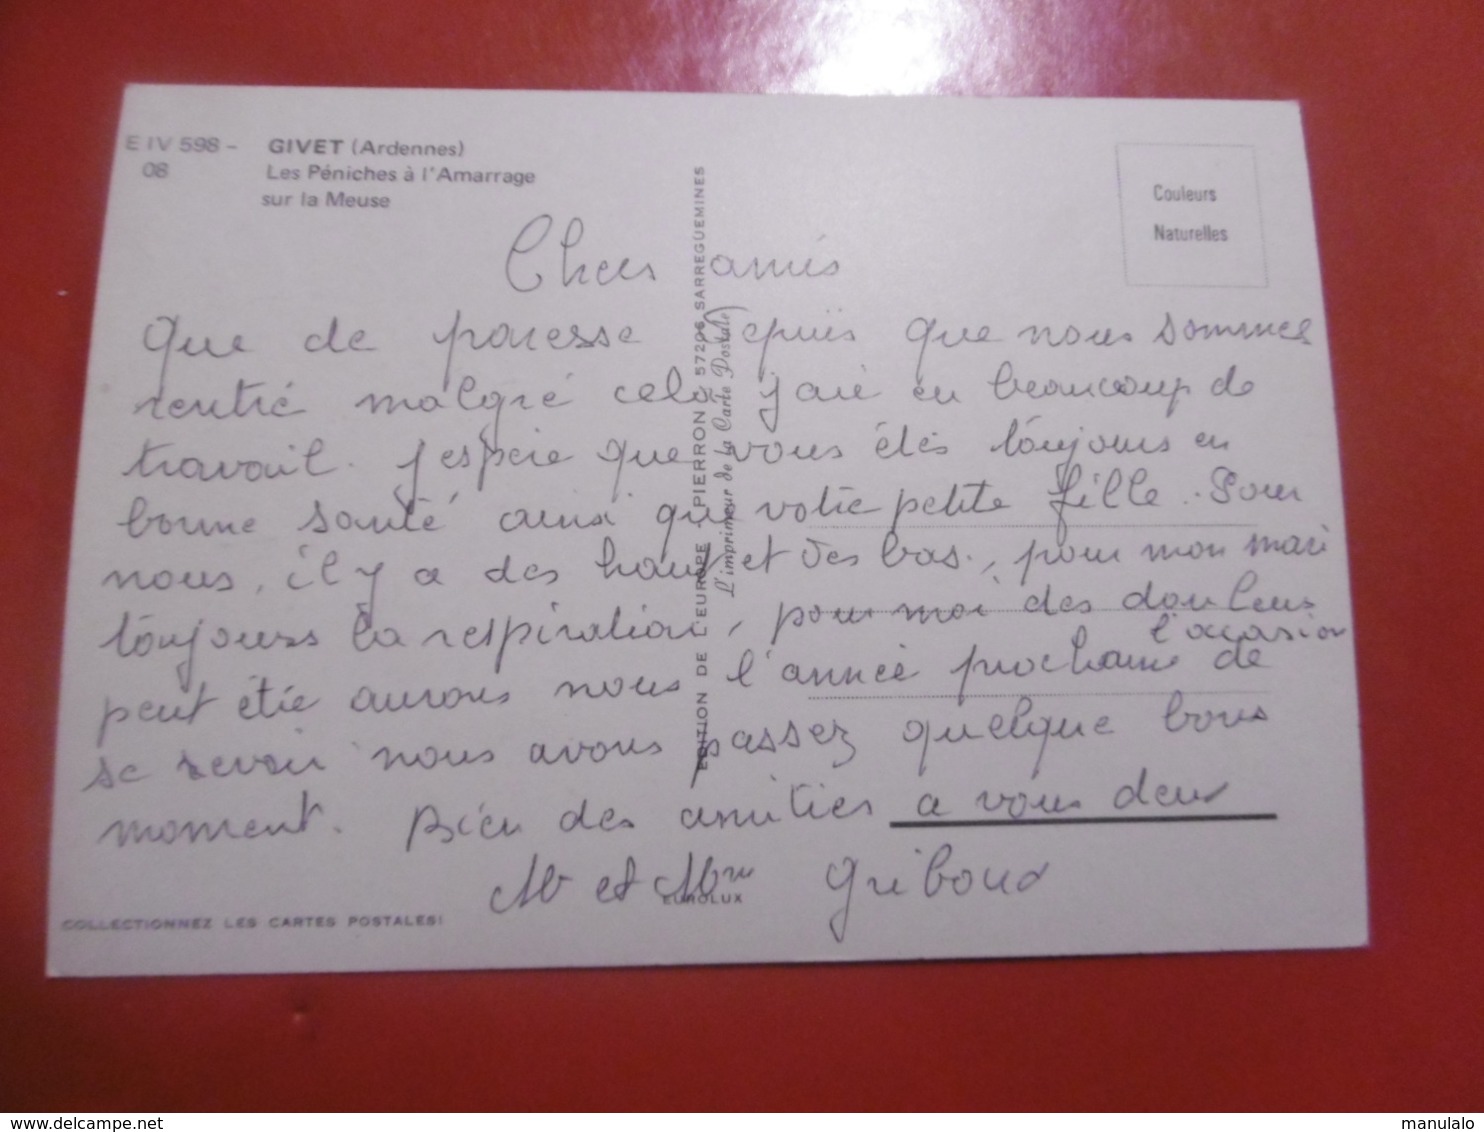 E IV 598 - GIVET (Ardennes)
08 Les Péniches à l'Amarrage
sur la Meuse
Couleurs
Naturelles
EDITION DE L'EUROPE - PIERRON 57206 SARREGUEMINES
L'imprimeur de la Carte Postale
Chers amis
Que de paresse depuis que nous sommes
rentré malgré cela j'aie eu beaucoup de
travail. j'espère que vous étés toujours en
bonne santé ainsi que votre petite fille. Pour
nous, il y a des haut et des bas, pour mon mari
toujours la respiration, pour moi des douleurs
l'occasion
peut étre aurons nous l'année prochaine de
se revoir nous avons passez quelque bons
moment. Bien des amitiés a vous deux
Mr et Mme Griboux
EUROLUX
COLLECTIONNEZ LES CARTES POSTALES!
delcampe.net
manulalo